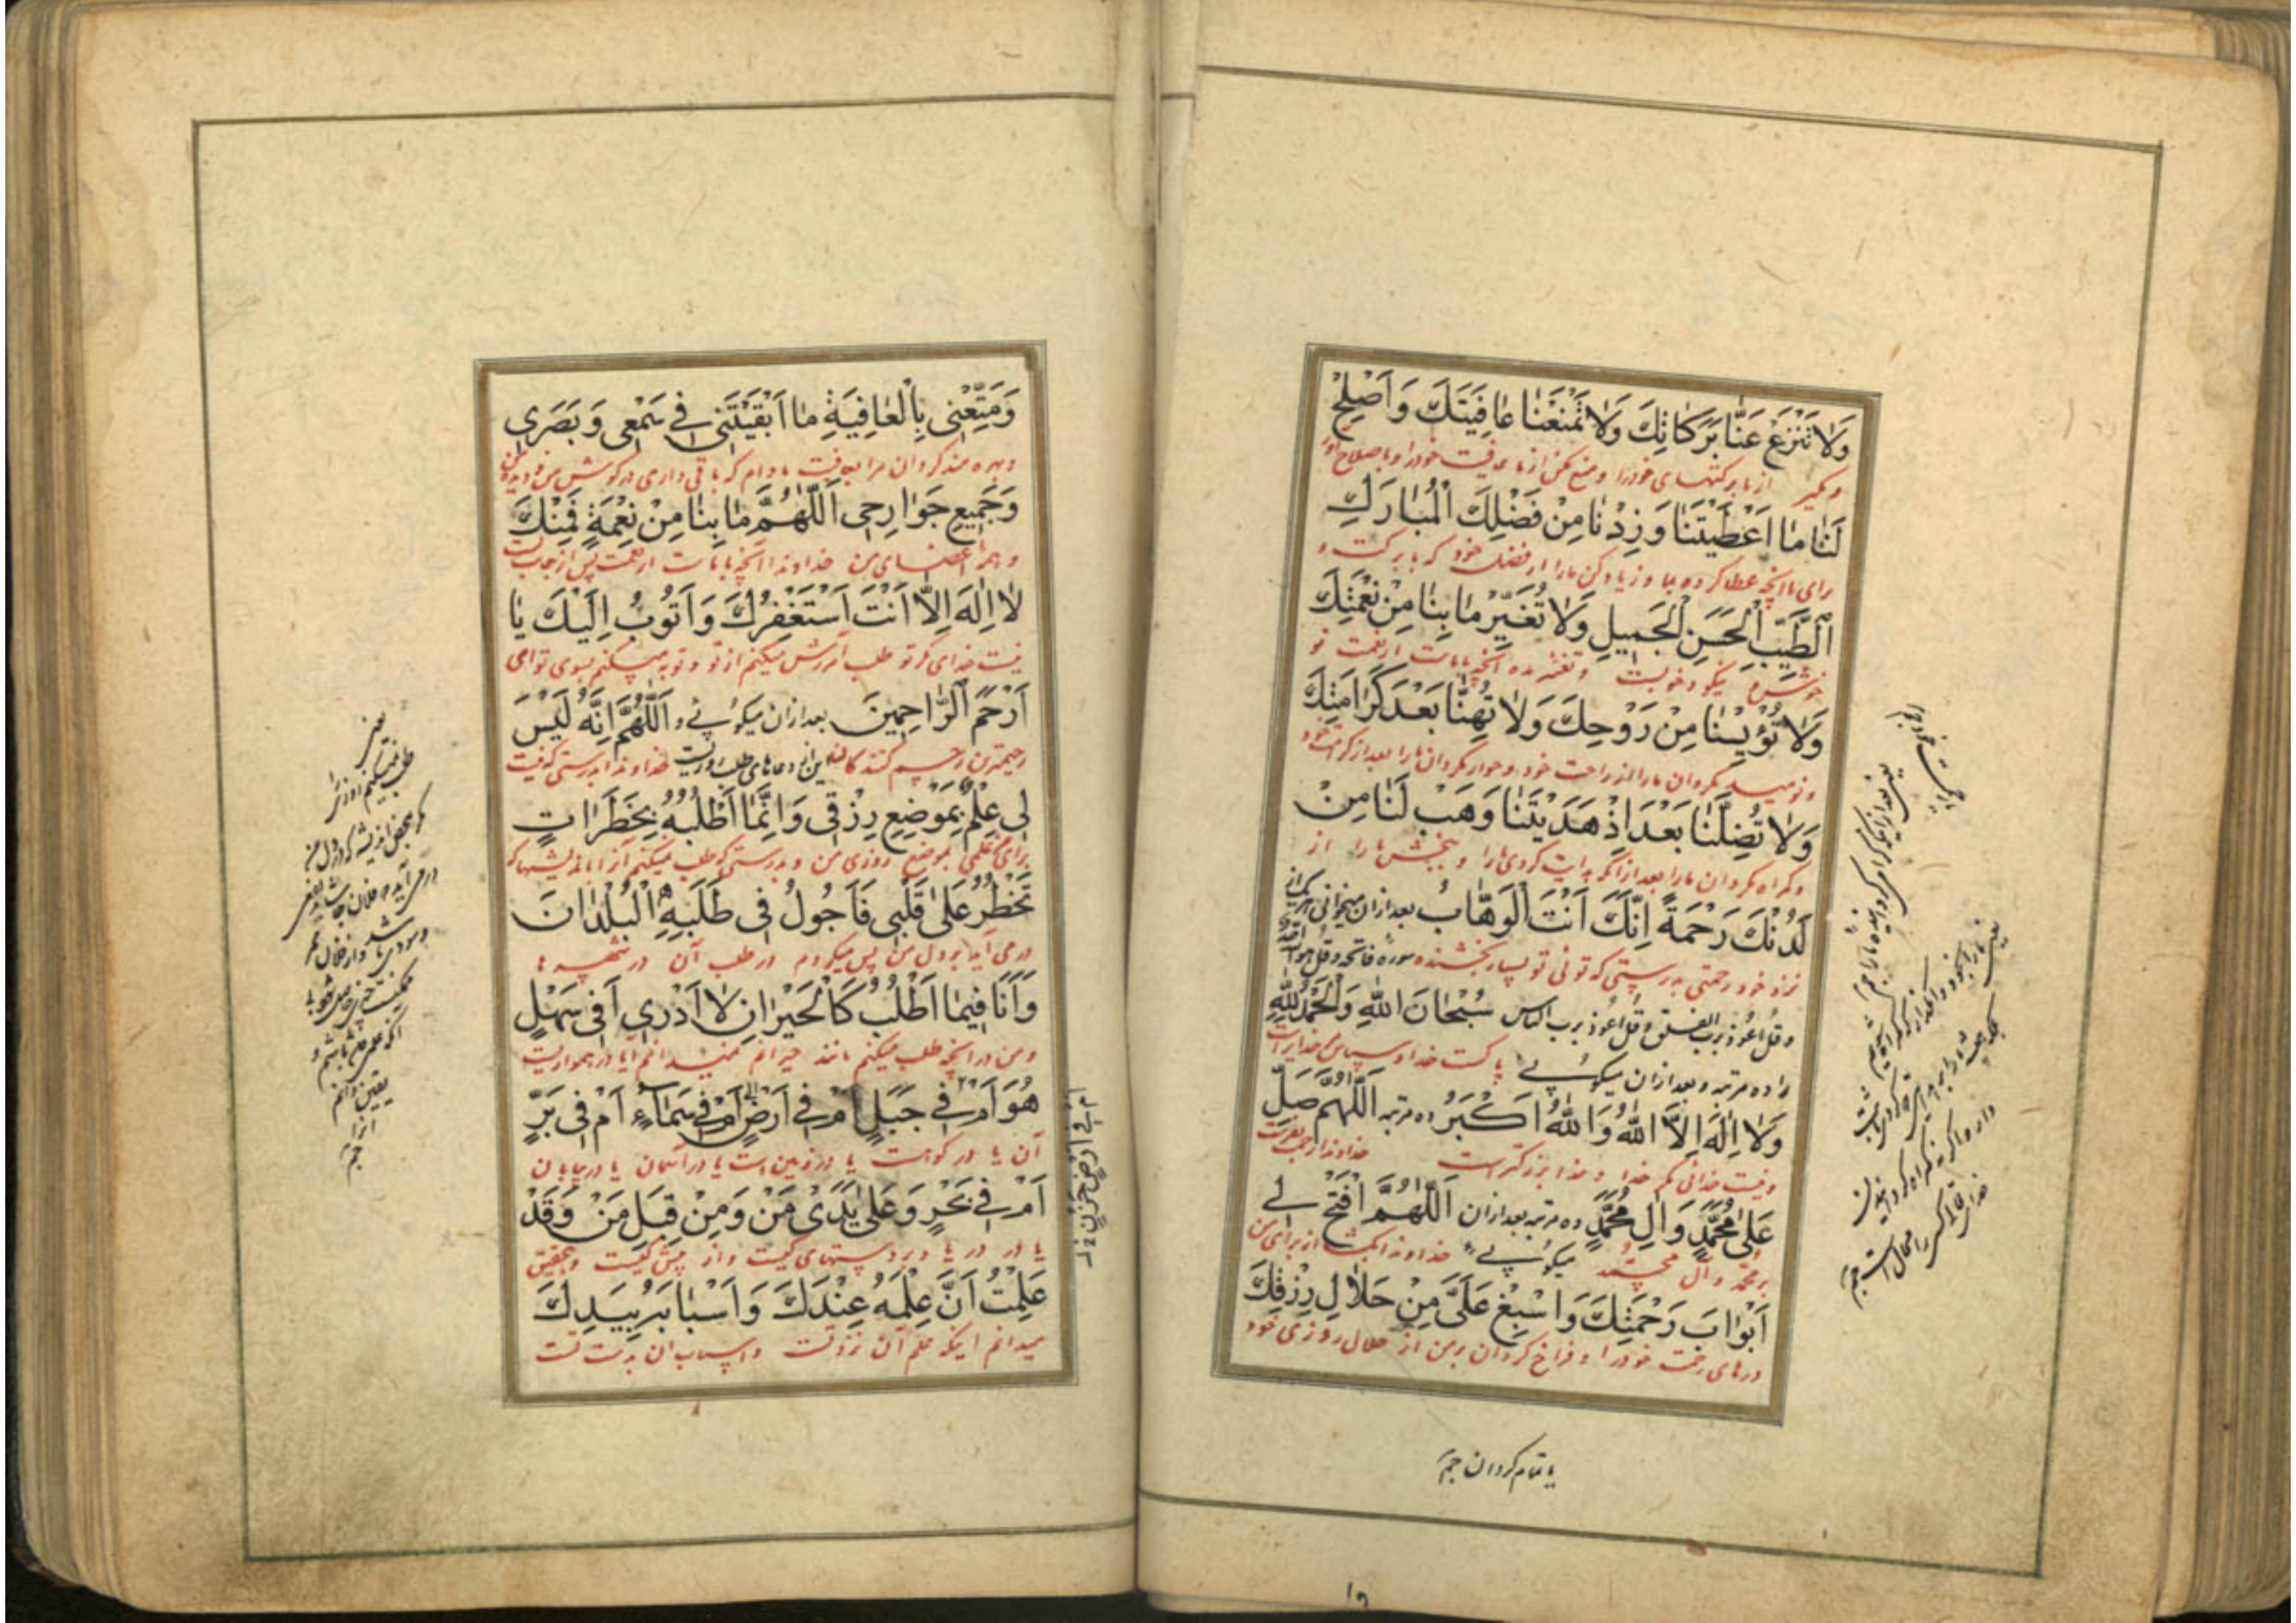 وَلَا تَنْزِعْ عَنَّا بَرَكَاتِكَ وَلَا تَمْنَعْنَا عَافِيَتَكَ وَاَصْلِحْ
و مگیر از ما برکتهای خودرا و منع مکن از ما عافیت خودرا و باصلاح اور
لَنَا مَا اَعْطَيْتَنَا وَزِدْنَا مِنْ فَضْلِكَ الْمُبَارَكِ
برای ما انچه عطا کرده بما و زیاد کن مارا از فضل خود که با برکت و
الطَّيِّبِ الْحَسَنِ الْجَمِيلِ وَلَا تُغَيِّرْ مَا بِنَا مِنْ نِعْمَتِكَ
نیکو و خوبست و تغیر مده انچه باماست از نعمت تو
وَلَا تُؤْيِسْنَا مِنْ رَوْحِكَ وَلَا تُهِنَّا بَعْدَ كَرَامَتِكَ
و نومید مگردان مارا از راحت خود و خوار مگردان مارا بعد از کرامت خود و
وَلَا تُضِلَّنَا بَعْدَ اِذْ هَدَيْتَنَا وَهَبْ لَنَا مِنْ
و گمراه مگردان مارا بعد از آنکه هدایت کردی مارا و ببخش ما را از
لَدُنْكَ رَحْمَةً اِنَّكَ اَنْتَ الْوَهَّابُ بعد ازان میخوانی
نزد خود رحمتی بدرستی که توئی تو بسیار بخشنده سوره فاتحه و قل هو الله
وقل اعوذ برب الفلق وقل اعوذ برب الناس سُبْحَانَ اللّٰهِ وَالْحَمْدُ لِلّٰهِ
را ده مرتبه و بعد ازان میگوئی پاکست خدا و سپاس خدایراست
وَلَا اِلٰهَ اِلَّا اللّٰهُ وَاللّٰهُ اَكْبَرُ ده مرتبه اَللّٰهُمَّ صَلِّ
و نیست خدائی مگر خدا و خدا بزرگتر است خداوندا رحمت بفرست
عَلٰى مُحَمَّدٍ وَاٰلِ مُحَمَّدٍ ده مرتبه بعد ازان اَللّٰهُمَّ افْتَحْ لِي
بر محمد و آل محمد میگوئی خداوندا بگشا از برای من
اَبْوَابَ رَحْمَتِكَ وَاَسْبِغْ عَلَىَّ مِنْ حَلَالِ رِزْقِكَ
درهای رحمت خودرا و فراخ گردان بر من از حلال روزی خود
یا تمام گردان
وَمَتِّعْنِى بِالْعَافِيَةِ مَا اَبْقَيْتَنِى فِي سَمْعِى وَبَصَرِى
و بهره مند گردان مرا بعافیت مادام که باقی داری در گوش من و دیده من
وَجَمِيعِ جَوَارِحِى اَللّٰهُمَّ مَا بِنَا مِنْ نِعْمَةٍ فَمِنْكَ
و همه اعضای من خداوندا آنچه باماست از نعمت پس از جانب تست
لَا اِلٰهَ اِلَّا اَنْتَ اَسْتَغْفِرُكَ وَاَتُوبُ اِلَيْكَ يَا
نیست خدای مگر تو طلب آمرزش میکنم از تو و توبه میکنم بسوی تو ای
اَرْحَمَ الرَّاحِمِينَ بعد ازان میگوئی اَللّٰهُمَّ اِنَّهُ لَيْسَ
رحیمترین رحم کنندگان این از دعاهای طلب روزیست خداوندا بدرستی که نیست
لِى عِلْمٌ بِمَوْضِعِ رِزْقِى وَاِنَّمَا اَطْلُبُهُ بِخَطَرَاتٍ
برای من علمی بموضع روزی من و بدرستی که طلب میکنم آنرا باندیشها که
تَخْطُرُ عَلٰى قَلْبِى فَاَجُولُ فِى طَلَبِهِ الْبُلْدَانَ
در می آید بر دل من پس میگردم در طلب آن در شهرها
وَاَنَا فِيمَا اَطْلُبُ كَالْحَيْرَانِ لَا اَدْرِى اَفِى سَهْلٍ
و من در انچه طلب میکنم مانند حیرانم نمیدانم آیا در همواریست
هُوَ اَمْ فِي جَبَلٍ اَمْ فِي اَرْضٍ اَمْ فِي سَمَاءٍ اَمْ فِى بَرٍّ
آن یا در کوهست یا در زمین است یا در آسمان یا در بیابان
اَمْ فِي بَحْرٍ وَعَلٰى يَدَىْ مَنْ وَمِنْ قِبَلِ مَنْ وَقَدْ
یا در دریا و بر دستهای کیست و از پیش کیست و بتحقیق
عَلِمْتُ اَنَّ عِلْمَهُ عِنْدَكَ وَاَسْبَابَهُ بِيَدِكَ
میدانم اینکه علم آن نزد تست و اسباب آن بدست تست